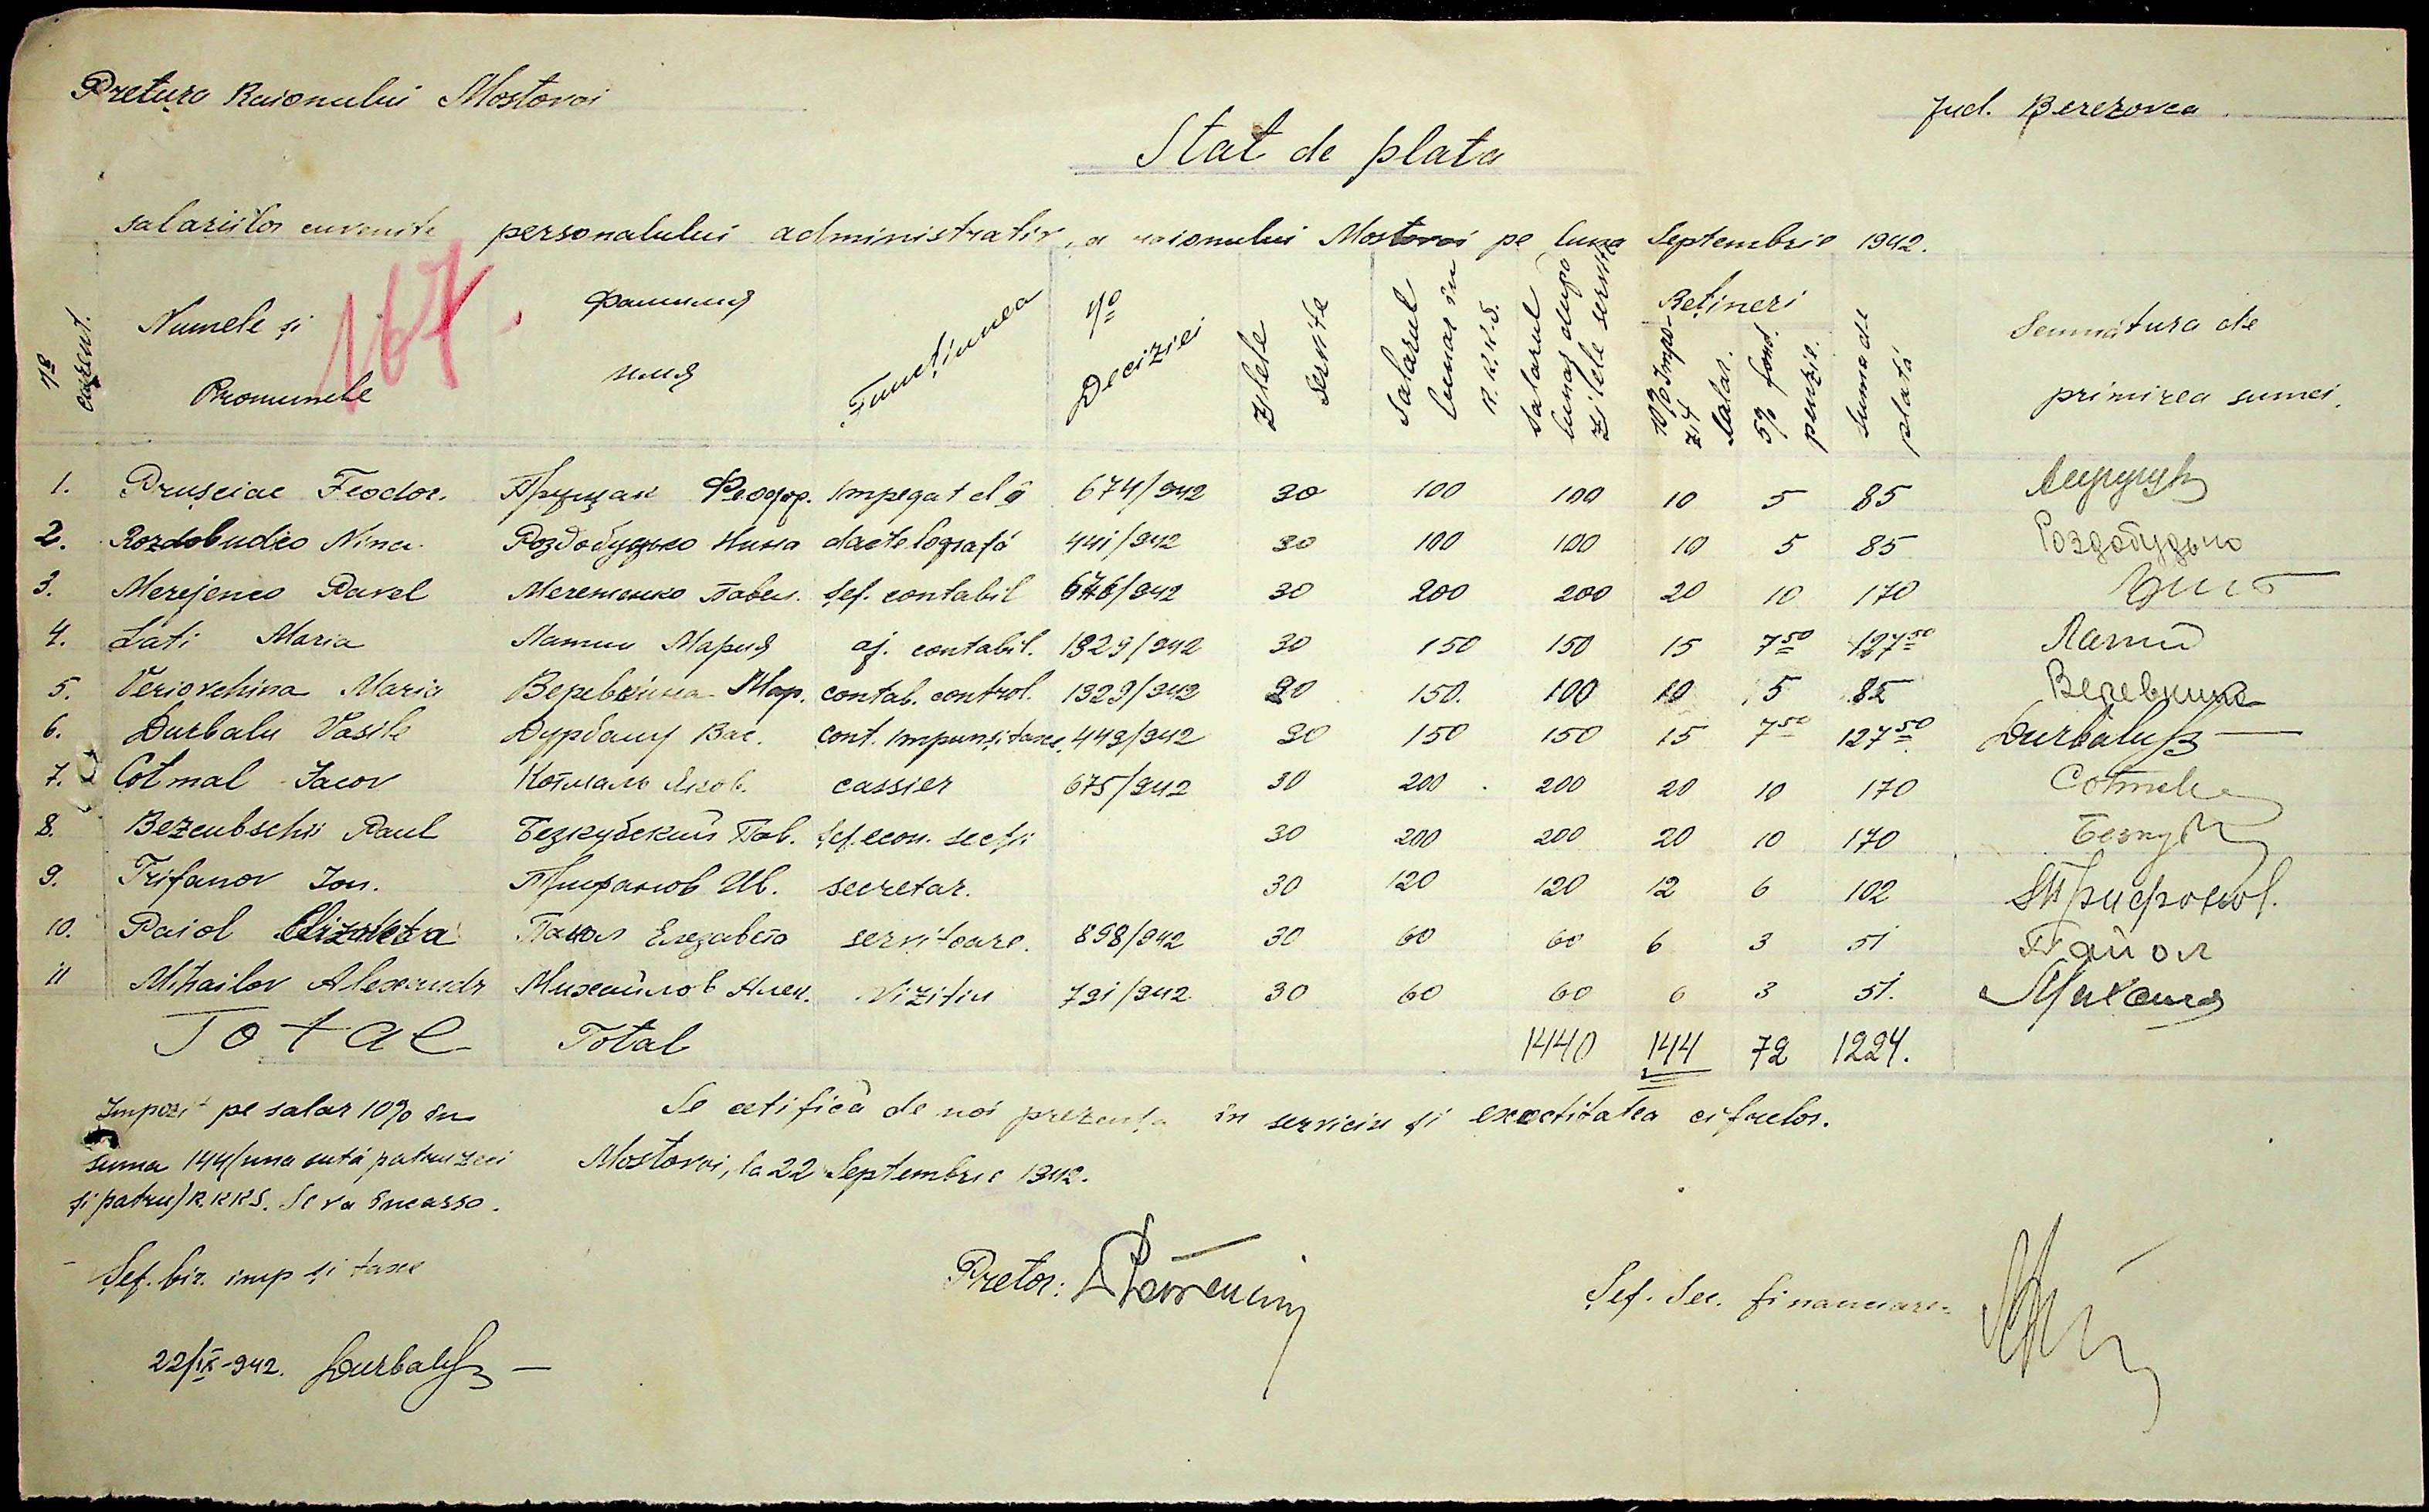 Pretura Raionului Mostovoi
Jud. Berezovca
Stat de plata
salariilor cuvenite personalului administrativ, a raionului Mostovoi pe luna Septembrie 1942.
167
№ curent. Numele și Pronumele Фамилия имя Funcțiunea № Deciziei Zilele servite Salarul lunar în R.K.K.S. Salarul lunar după zilele servite Rețineri 10% Impozit salar. 5% fond. penzie. Suma de plată Semnătura de primirea sumei.
1. Prușciac Feodor. Прущак Феодор. Impegat cl II 674/942 30 100 100 10 5 85
2. Rozdobudco Nina Роздобудько Нина dactelografă 441/942 30 100 100 10 5 85 Роздобудько
3. Merejenco Pavel Мереженко Павел. Șef. contabil 676/942 30 200 200 20 10 170
4. Lati Maria Латий Мария aj. contabil. 1329/942 30 150 150 15 7 50 127 50 Латий
5. Veriovchina Maria Веревкина Мар. contab. control. 1329/942 20 150. 100 10 5 85 Веревкина
6. Durbalu Vasile Дурбалу Вас. cont. impun și taxe 449/942 30 150 150 15 7 50 127 50 Durbalu
7. Cotmal Iacov Котмаль Яков. cassier 675/942 30 200 200 20 10 170
8. Bezcubschii Paul Безкубский Пав. Șef. econ. secți 30 200 200 20 10 170
9. Trifanov Ion. Трифанов Ив. secretar. 30 120 120 12 6 102
10. Paiol Elizaveta Паиол Елезавета servitoare. 898/942 30 60 60 6 3 51 Пайол
11 Mihailov Alexandr Михайлов Алек. Vizitiu 791/942 30 60 60 6 3 51.
Total Total 1440 144 72 1224.
Impozit pe salar 10% în
suma 144(una sută patruzeci
și patru) R.K.K.S. Se va încassa.
Șef. bir. imp și taxe
22/IX-942. Durbalu
Se cetifică de noi prezența în serviciu și exactitatea cifrelor.
Mostovoi, la 22 Septembrie 1942.
Pretor:
Șef. Sec. financiare